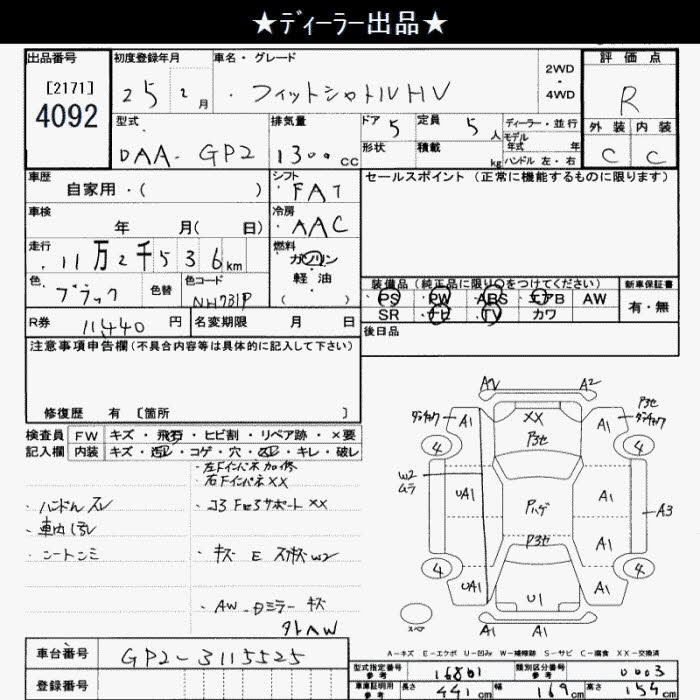 ★ディーラー出品★
出品番号
[2171]
4092
初度登録年月
25 2 月
車名・グレード
・フィットシャトルHV
2WD
・
4WD
評価点
R
型式
DAA-GP2
排気量
1300 cc
ドア 5
定員 5 人
形状
積載 kg
ディーラー・並行
モデル
年式 年
ハンドル 左・右
外装 内装
C C
車歴
自家用・( )
シフト
FAT
セールスポイント (正常に機能するものに限ります)
車検
年 月( 日)
冷房
AAC
走行
11万2千536km
燃料
ガソリン
・
軽油
( )
色
ブラック
色替
色コード
NH731P
装備品 (純正品に限り○をつけてください)
新車保証書
PS PW ABS エアB AW
SR ナビ TV カワ
有・無
R券 11440 円
名変期限 月 日
後日品
注意事項申告欄(不具合内容等は具体的に記入して下さい)
修復歴 有 [箇所 ]
検査員 FW キズ・飛石・ヒビ割・リペア跡・×要
記入欄 内装 キズ・汚レ・コゲ・穴・スレ・キレ・破レ
・左Fインパネ加修
・右FインパネXX
・ハンドルスレ
・コアサポートXX
・車内汚レ
・シートシミ
・キズ E スリキズ W2
・AW・Dミラーキズ
A2 A2
XX
P3セ
A1 A1
4 4
W2
ムラ
UA1
Pハゲ
A1
A3
P3セ
A1
4 4
UA1
U1
A1
スペア
A1 A1
A-キズ E-エクボ U-凹み W-補修跡 S-サビ C-腐食 XX-交換済
車台番号 GP2-3115525
型式指定番号
参考
16801
類別区分番号
参考
0003
登録番号
車庫証明用
参考
長さ 441 cm 幅 169 cm 高さ 154 cm